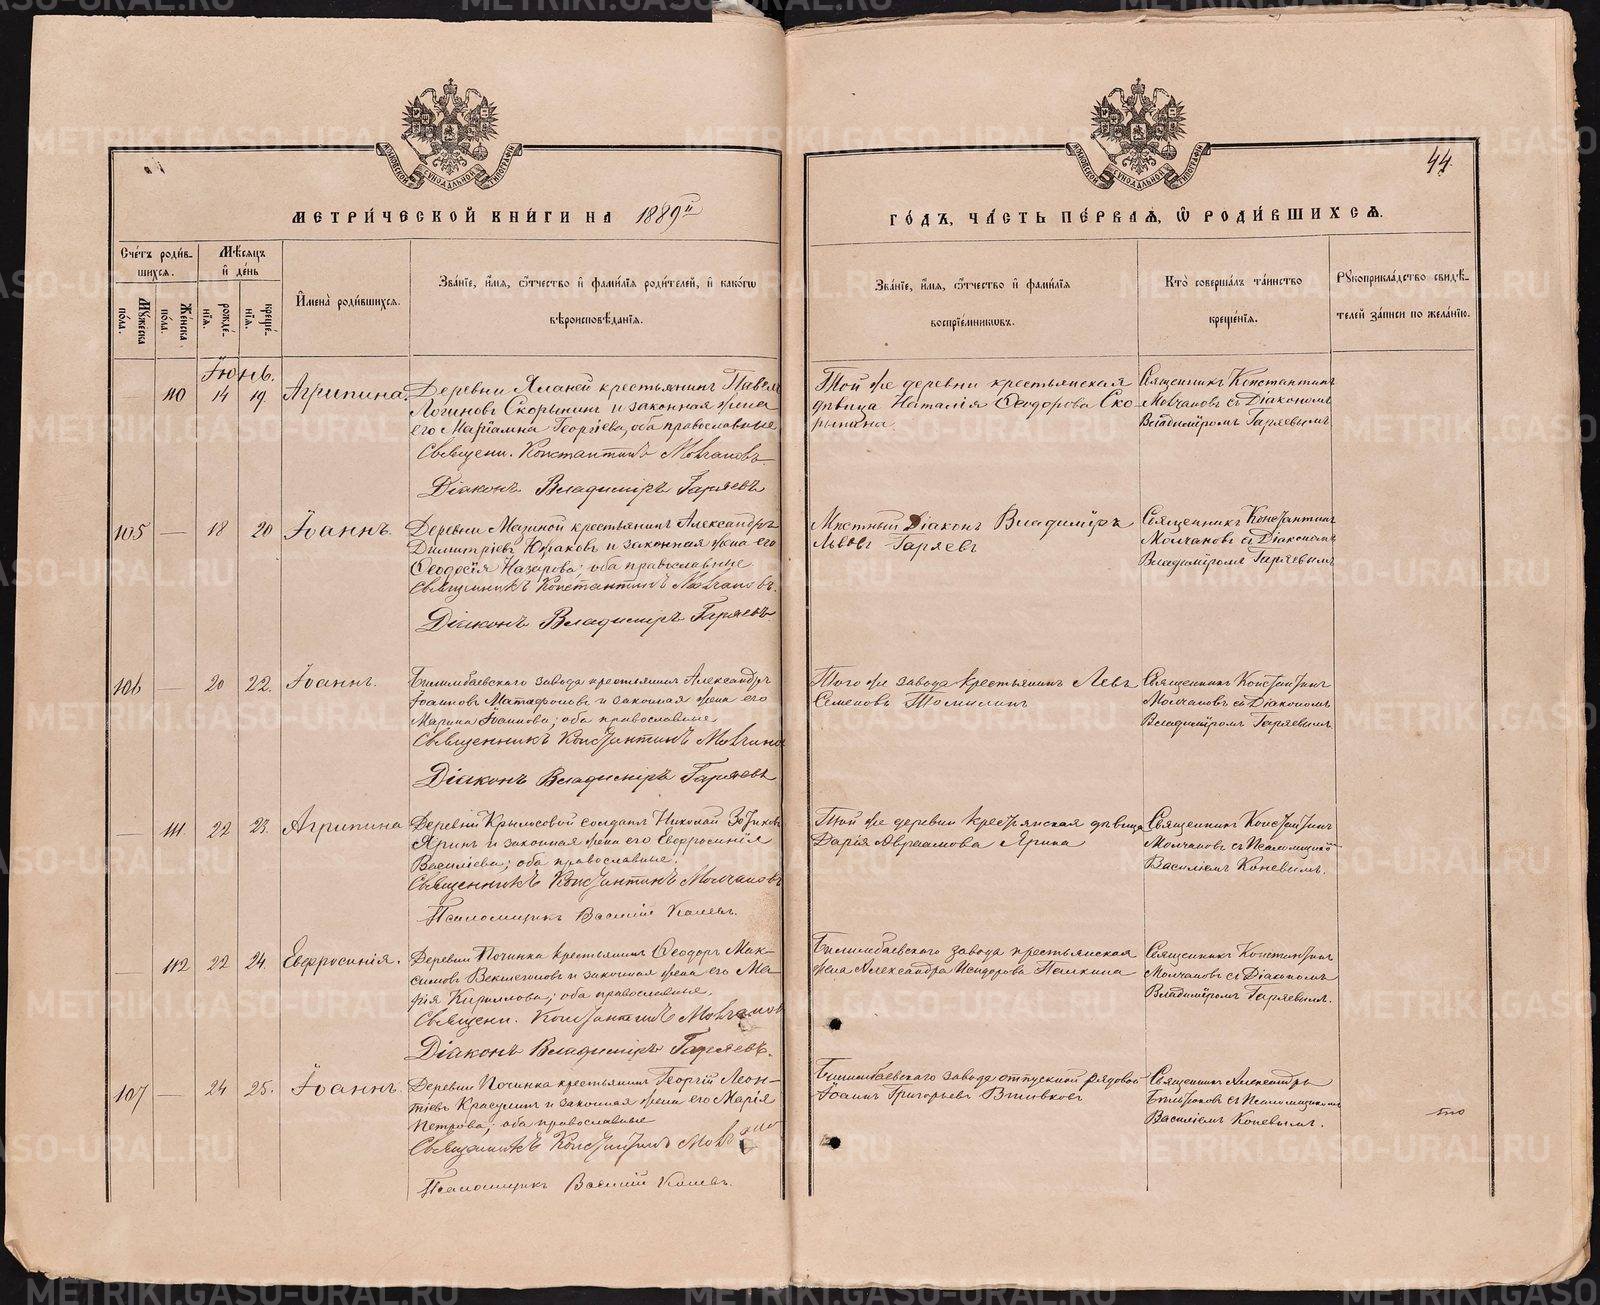 МЕТРИ́ЧЕСКОЙ КНИ́ГИ НА 1889й
ГО́ДЪ, ЧА́СТЬ ПЕ́РВАЯ, Ѡ РОДИ́ВШИХСЯ.
44
Сче́тъ роди́в-
шихся.
Мѣ́сяцъ
и҆ де́нь
Му́жеска
по́ла.
Же́нска
по́ла.
рожде́-
нїя.
креще́-
нїя.
И҆мена̀ роди́вшихся.
Зва́нїе, и҆́мя, ѻ҆́тчество и҆ фами́лїя роди́телей, и҆ како́гѡ
вѣроисповѣ́данїя.
Зва́нїе, и҆́мя, ѻ҆́тчество и҆ фами́лїя
воспрїе́мниковъ.
Кто̀ соверша́лъ та́инство
креще́нїя.
Рꙋкоприкла́дство свидѣ́-
телей за́писи по жела́нїю.
Іюнь.
110 14 19 Агрипина.
Деревни Яланей крестьянинъ Павелъ
Логиновъ Скорынинъ и законная жена
его Маріамна Георгіева, оба православные
Священн. Константинъ Молчановъ
Діаконъ Владимиръ Гаряевъ
Той же деревни крестьянская
дѣвица Наталія Ѳеодорова Ско-
рынина
Священникъ Константинъ
Молчановъ съ Діакономъ
Владиміромъ Гаряевымъ
105 — 18 20 Іоаннъ.
Деревни Мазиной крестьянинъ Александръ
Димитріевъ Южаковъ и законная жена его
Ѳеодосія Назарова; оба православные
Священникъ Константинъ Молчановъ.
Діаконъ Владимиръ Гаряевъ
Мѣстный Діаконъ Владиміръ
Львовъ Гаряевъ
Священникъ Константинъ
Молчановъ съ Діакономъ
Владиміромъ Гаряевымъ
106 — 20 22. Іоаннъ.
Билимбаевского завода крестьянинъ Александръ
Іоанновъ Матафоновъ и законная жена его
Марина Іоаннова; оба православные
Священникъ Константинъ Молчановъ
Діаконъ Владимиръ Гаряевъ
Того же завода крестьянинъ Левъ
Семеновъ Томилинъ
Священникъ Константинъ
Молчановъ съ Діакономъ
Владиміромъ Гаряевымъ
— 111. 22 23. Агрипина
Деревни Крылосовой солдатъ Николай Зотиковъ
Яринъ и законная жена его Евфросинія
Василіева; оба православные.
Священникъ Константинъ Молчановъ
Псаломщикъ Василий Коневъ.
Той же деревни крестьянская дѣвица
Дарія Авраамова Ярина
Священникъ Константинъ
Молчановъ съ Псаломщикомъ
Василіемъ Коневымъ.
— 112 22 24. Евфросинія.
Деревни Починка крестьянинъ Ѳеодоръ Мак-
симовъ и законная жена его Ма-
рія Кириллова; оба православные.
Священн. Константинъ Молчановъ
Діаконъ Владимиръ Гаряевъ.
Билимбаевского завода крестьянская
жена Александра Исидорова Палкина
Священникъ Константинъ
Молчановъ съ Діакономъ
Владиміромъ Гаряевымъ.
107 — 24 25. Іоаннъ.
Деревни Починка крестьянинъ Георгій Леон-
тіевъ Красулинъ и законная жена его Марія
Петрова; оба православные
Священникъ Константинъ Молчановъ
Псаломщикъ Василий Коневъ.
Билимбаевского завода отпускной рядовой
Іоаннъ Григорьевъ Вшивковъ
Священникъ Александръ
съ Псаломщикомъ
Василіемъ Коневымъ.
METRIKI.GASO-URAL.RU